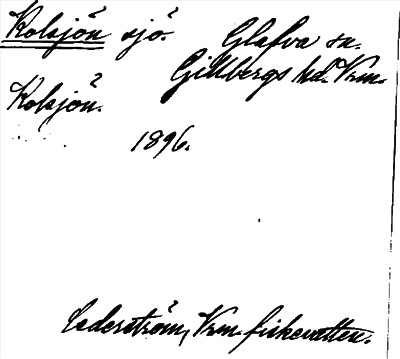 Kolsjön sjö. Glafva sn.
Gillbergs hd. Vrm.
Kolsjön.
1896.
Cederström, Vrm. fiskevatten.